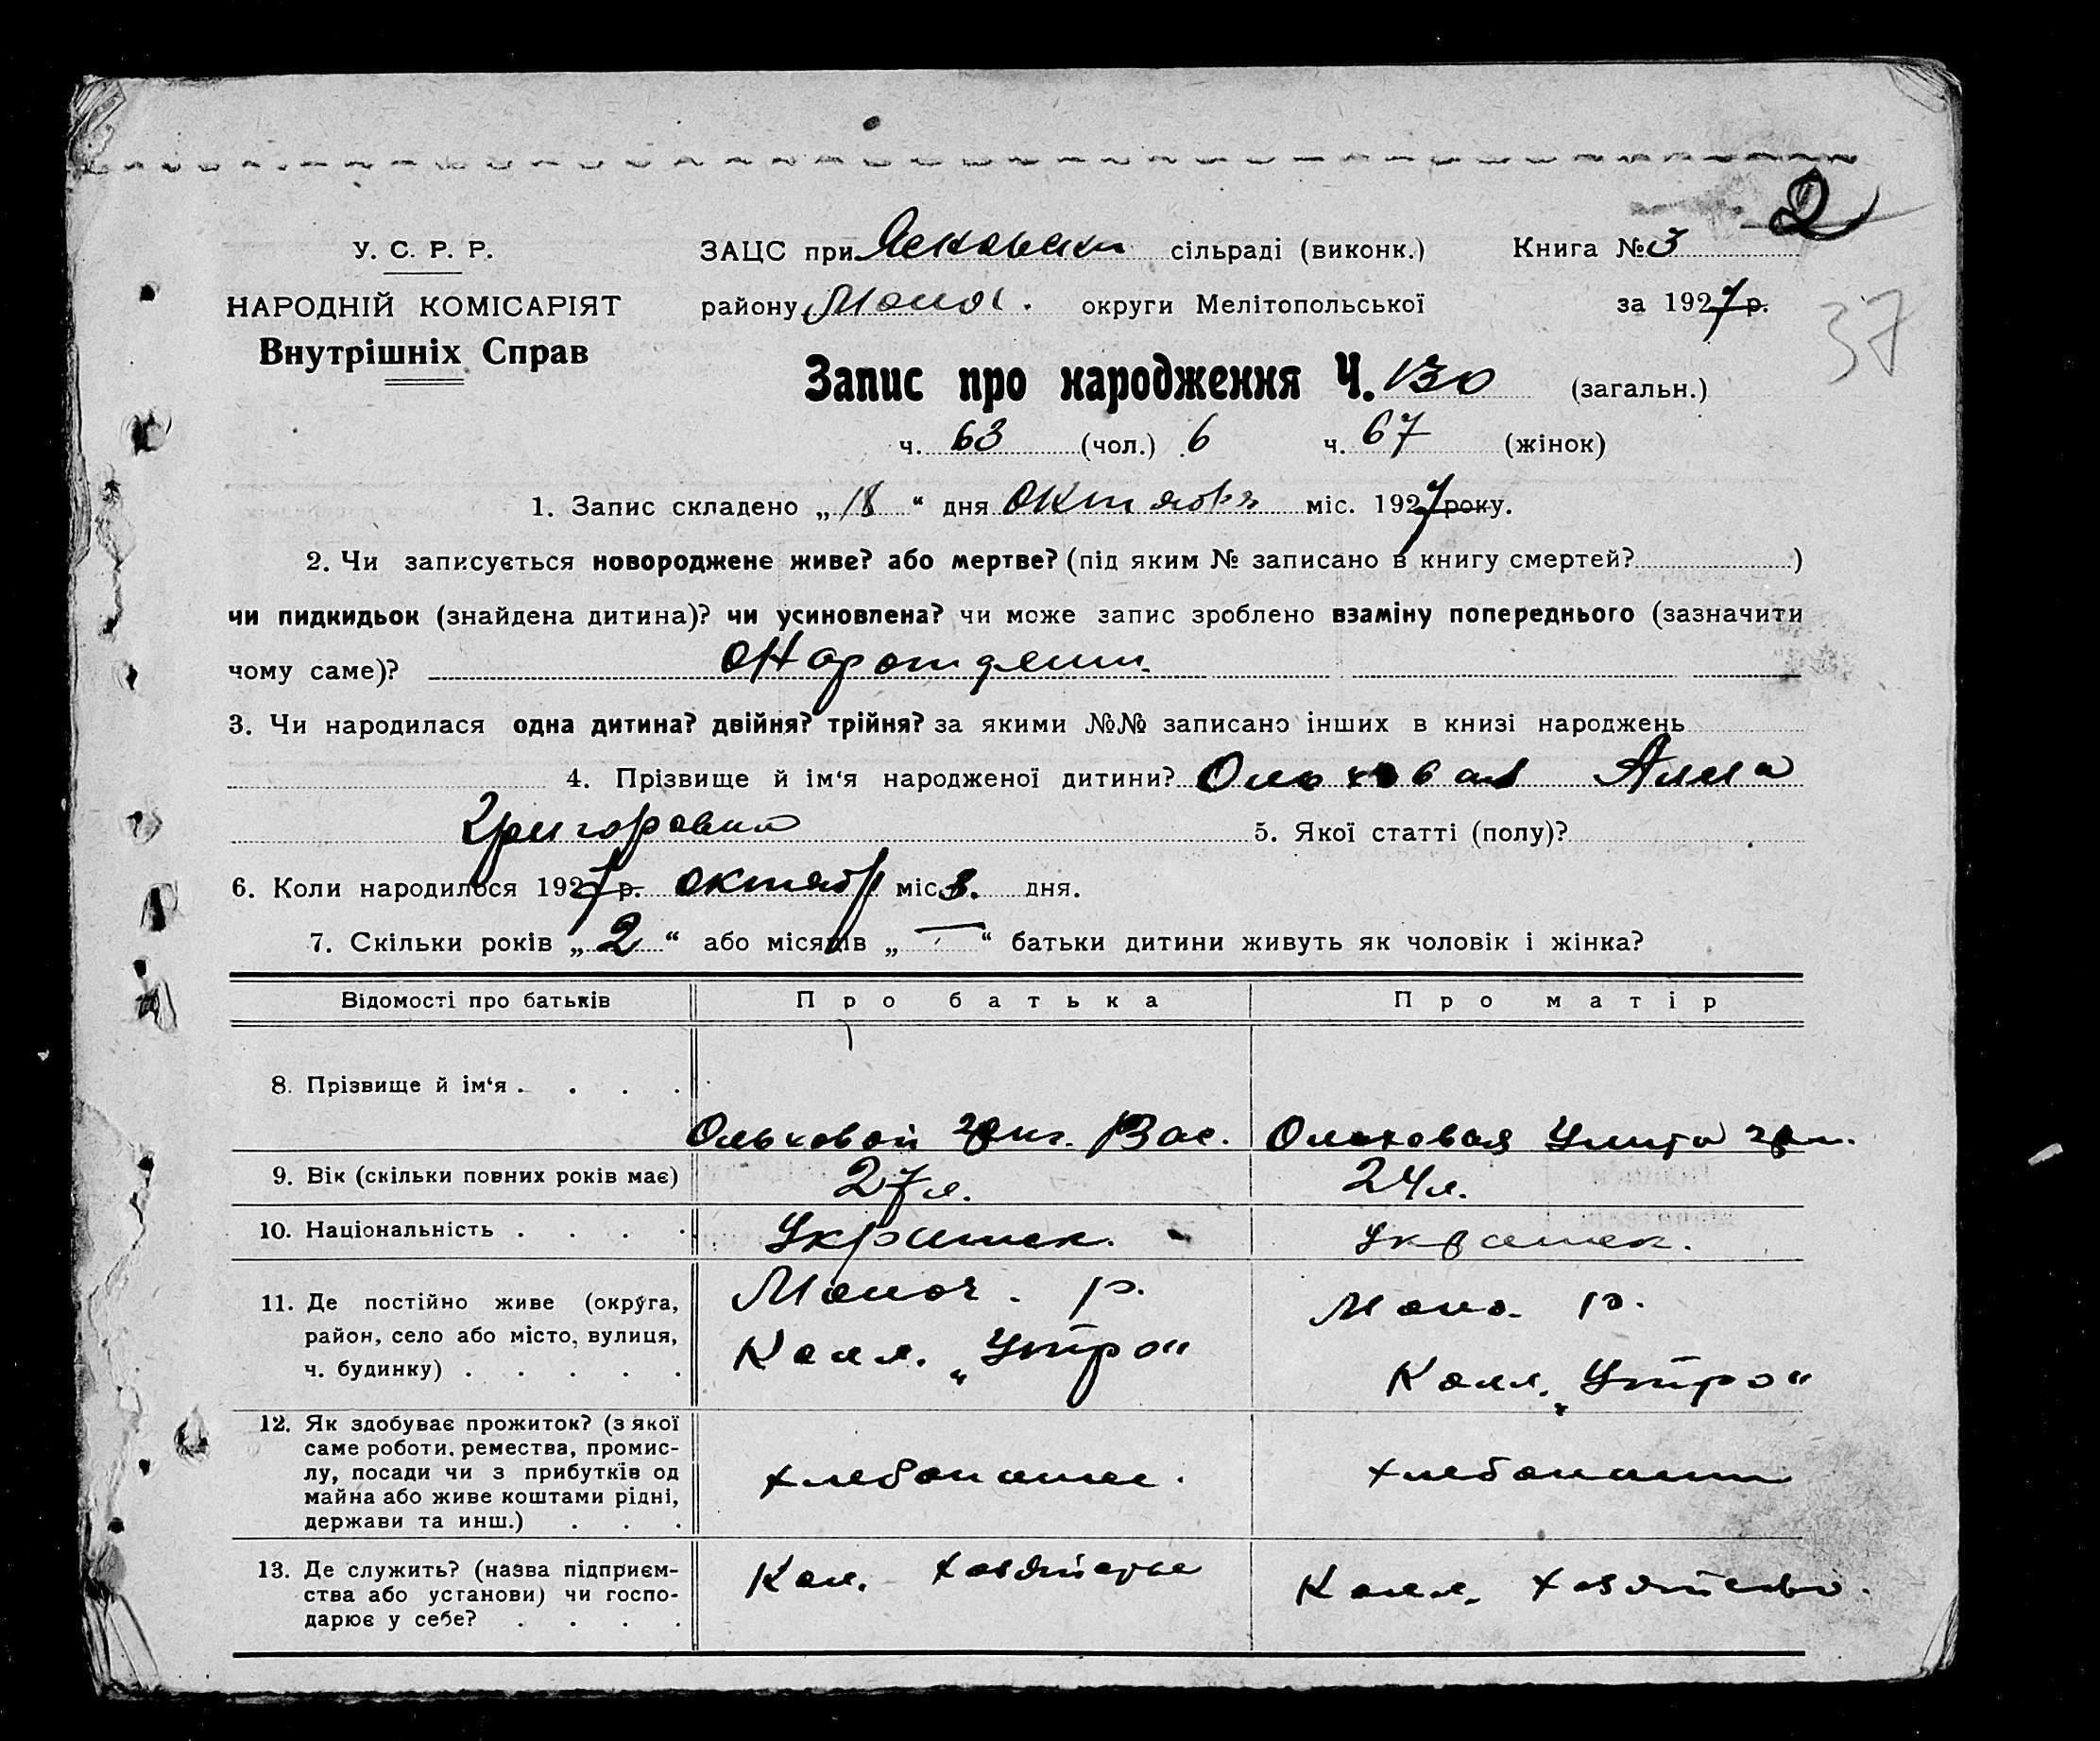 2
У. С. Р. Р.
НАРОДНІЙ КОМІСАРІЯТ
Внутрішніх Справ
ЗАЦС при сільраді (виконк.) Книга № 3
району Молоч. округи Мелітопольської за 1927 р.
37
Запис про народження Ч. 130 (загальн.)
ч. 63 (чол.) б ч. 67 (жінок)
1. Запис складено „18“ дня Октября міс. 1927 року.
2. Чи записується новороджене живе? або мертве? (під яким № записано в книгу смертей? )
чи пидкидьок (знайдена дитина)? чи усиновлена? чи може запис зроблено взаміну попереднього (зазначити
чому саме)?
3. Чи народилася одна дитина? двійня? трійня? за якими №№ записано інших в книзі народжень
4. Прізвище й ім‘я народженої дитини? Ольховая Алла
Григоровна 5. Якої статті (полу)?
6. Коли народилося 1927 р. октябр міс. 8. дня.
7. Скільки років „2“ або місяців „—“ батьки дитини живуть як чоловік і жінка?
Відомості про батьків Про батька Про матір
8. Прізвище й ім‘я . . . .
Ольховой Григ. Вас. Ольховая Гри.
9. Вік (скільки повних років має) 27 л. 24 л.
10. Національність . . . . Украинек. Украинек.
11. Де постійно живе (округа,
район, село або місто, вулиця,
ч. будинку) . . . . .
Молоч. р. Моло. р.
Колл. „Утро“ Колл. „Утро“
12. Як здобуває прожиток? (з якої
саме роботи, ремества, промис-
лу, посади чи з прибутків од
майна або живе коштами рідні,
держави та инш.) . . .
хлебопашес. хлебопаши
13. Де служить? (назва підприєм-
ства або установи) чи госпо-
дарює у себе? . . . .
Кол. хозяйстве Колл. хозяйство.